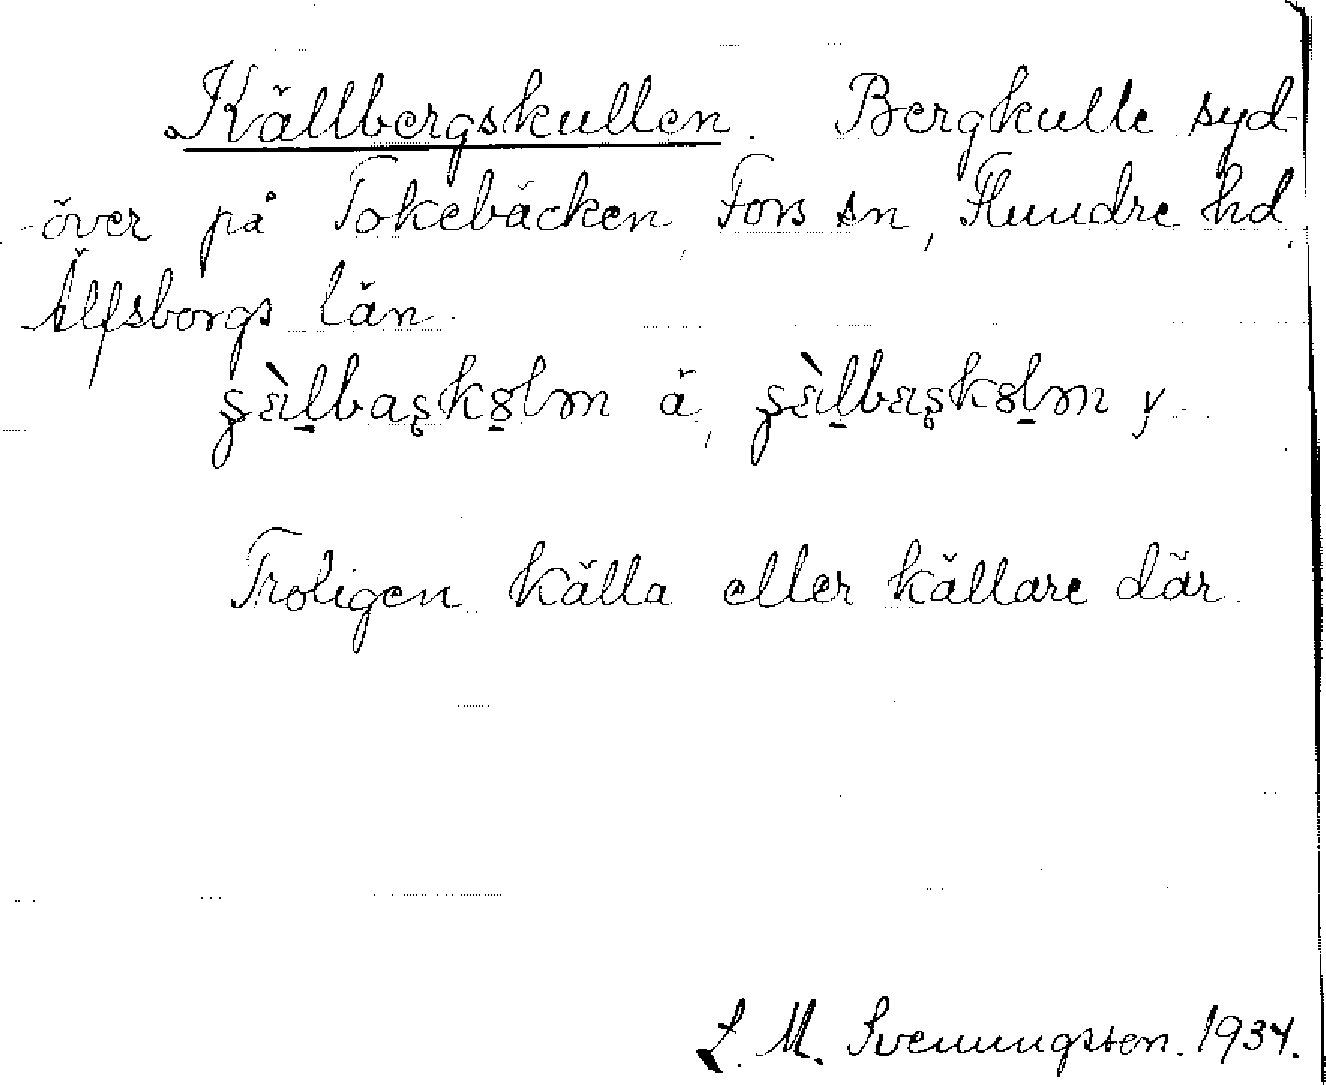 Källbergskullen. Bergkulle syd-
över på Tokebäcken, Fors sn, Flundre hd,
Älfsborgs län.
ä, y
Troligen källa eller källare där.
L. M. Svenungsson. 1934.